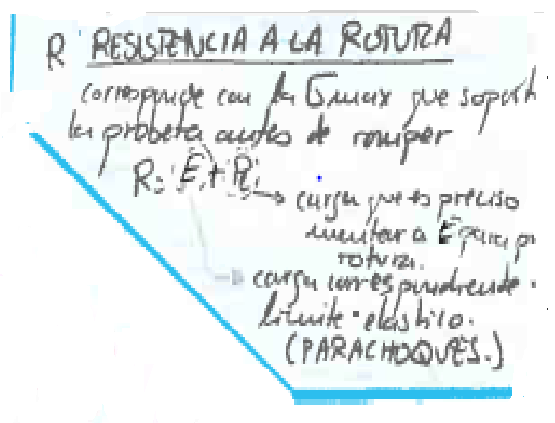 R RESISTENCIA A LA ROTURA
corresponde con la σmax que soporta
la probeta antes de romper
R = E + R
carga que es preciso
aumentar a E para
rotura.
carga correspondiente
límite elástico.
(PARACHOQUES.)